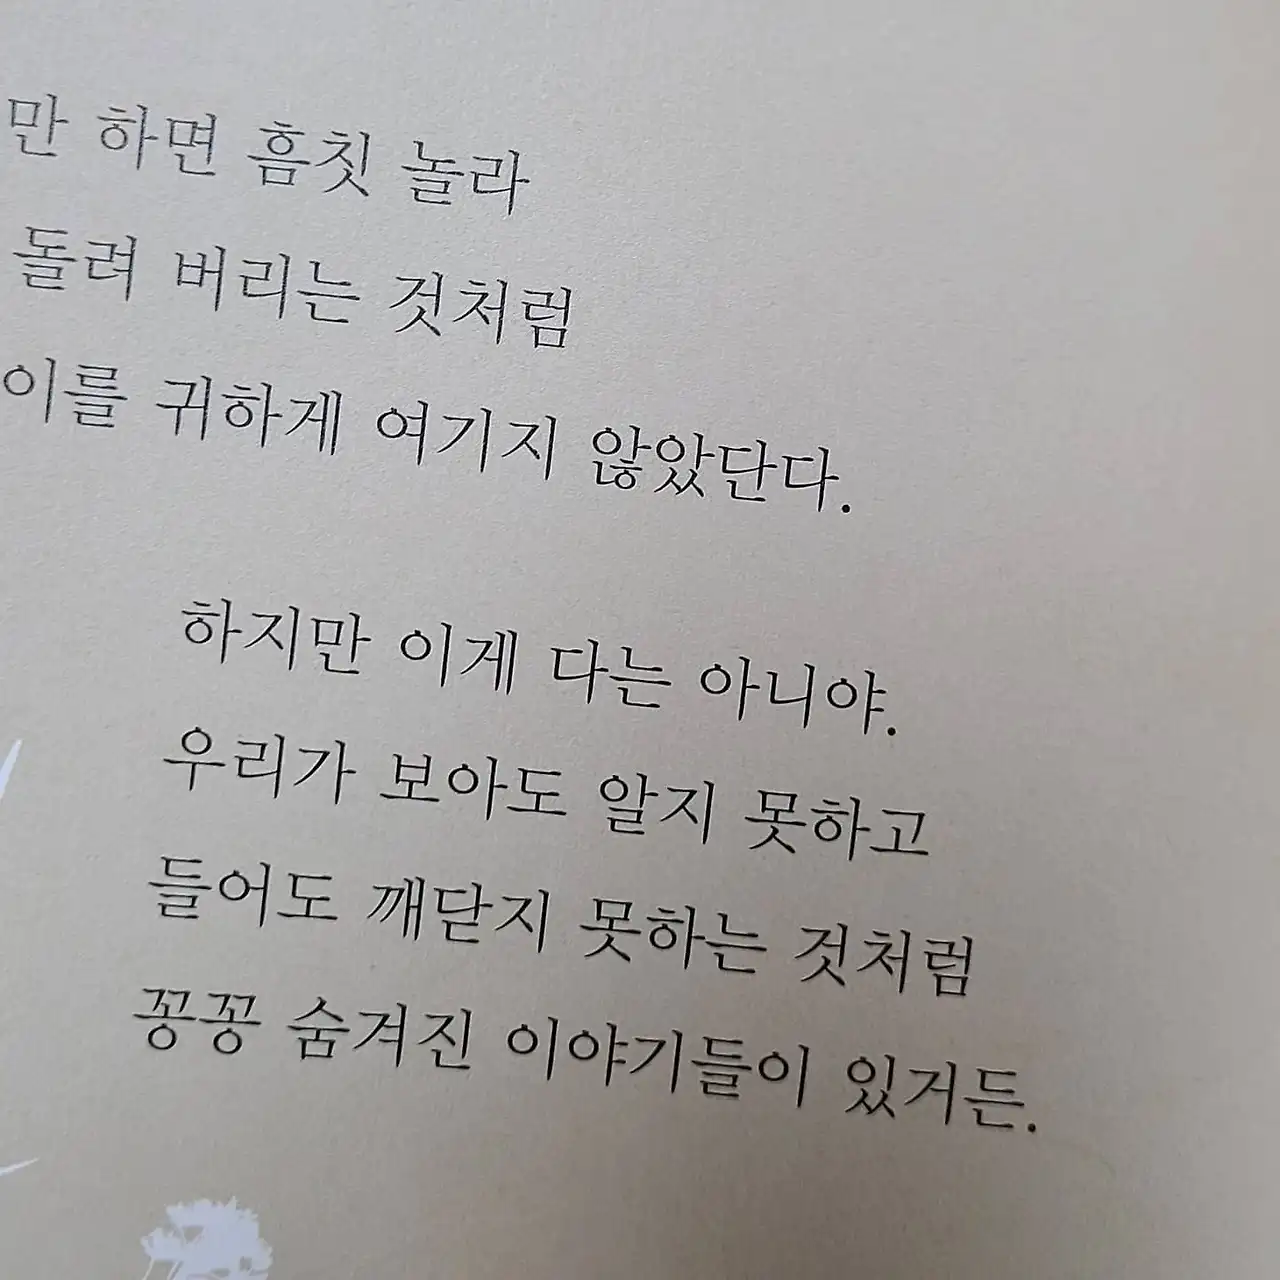 만 하면 흠칫 놀라
돌려 버리는 것처럼
이를 귀하게 여기지 않았단다.
하지만 이게 다는 아니야.
우리가 보아도 알지 못하고
들어도 깨닫지 못하는 것처럼
꽁꽁 숨겨진 이야기들이 있거든.